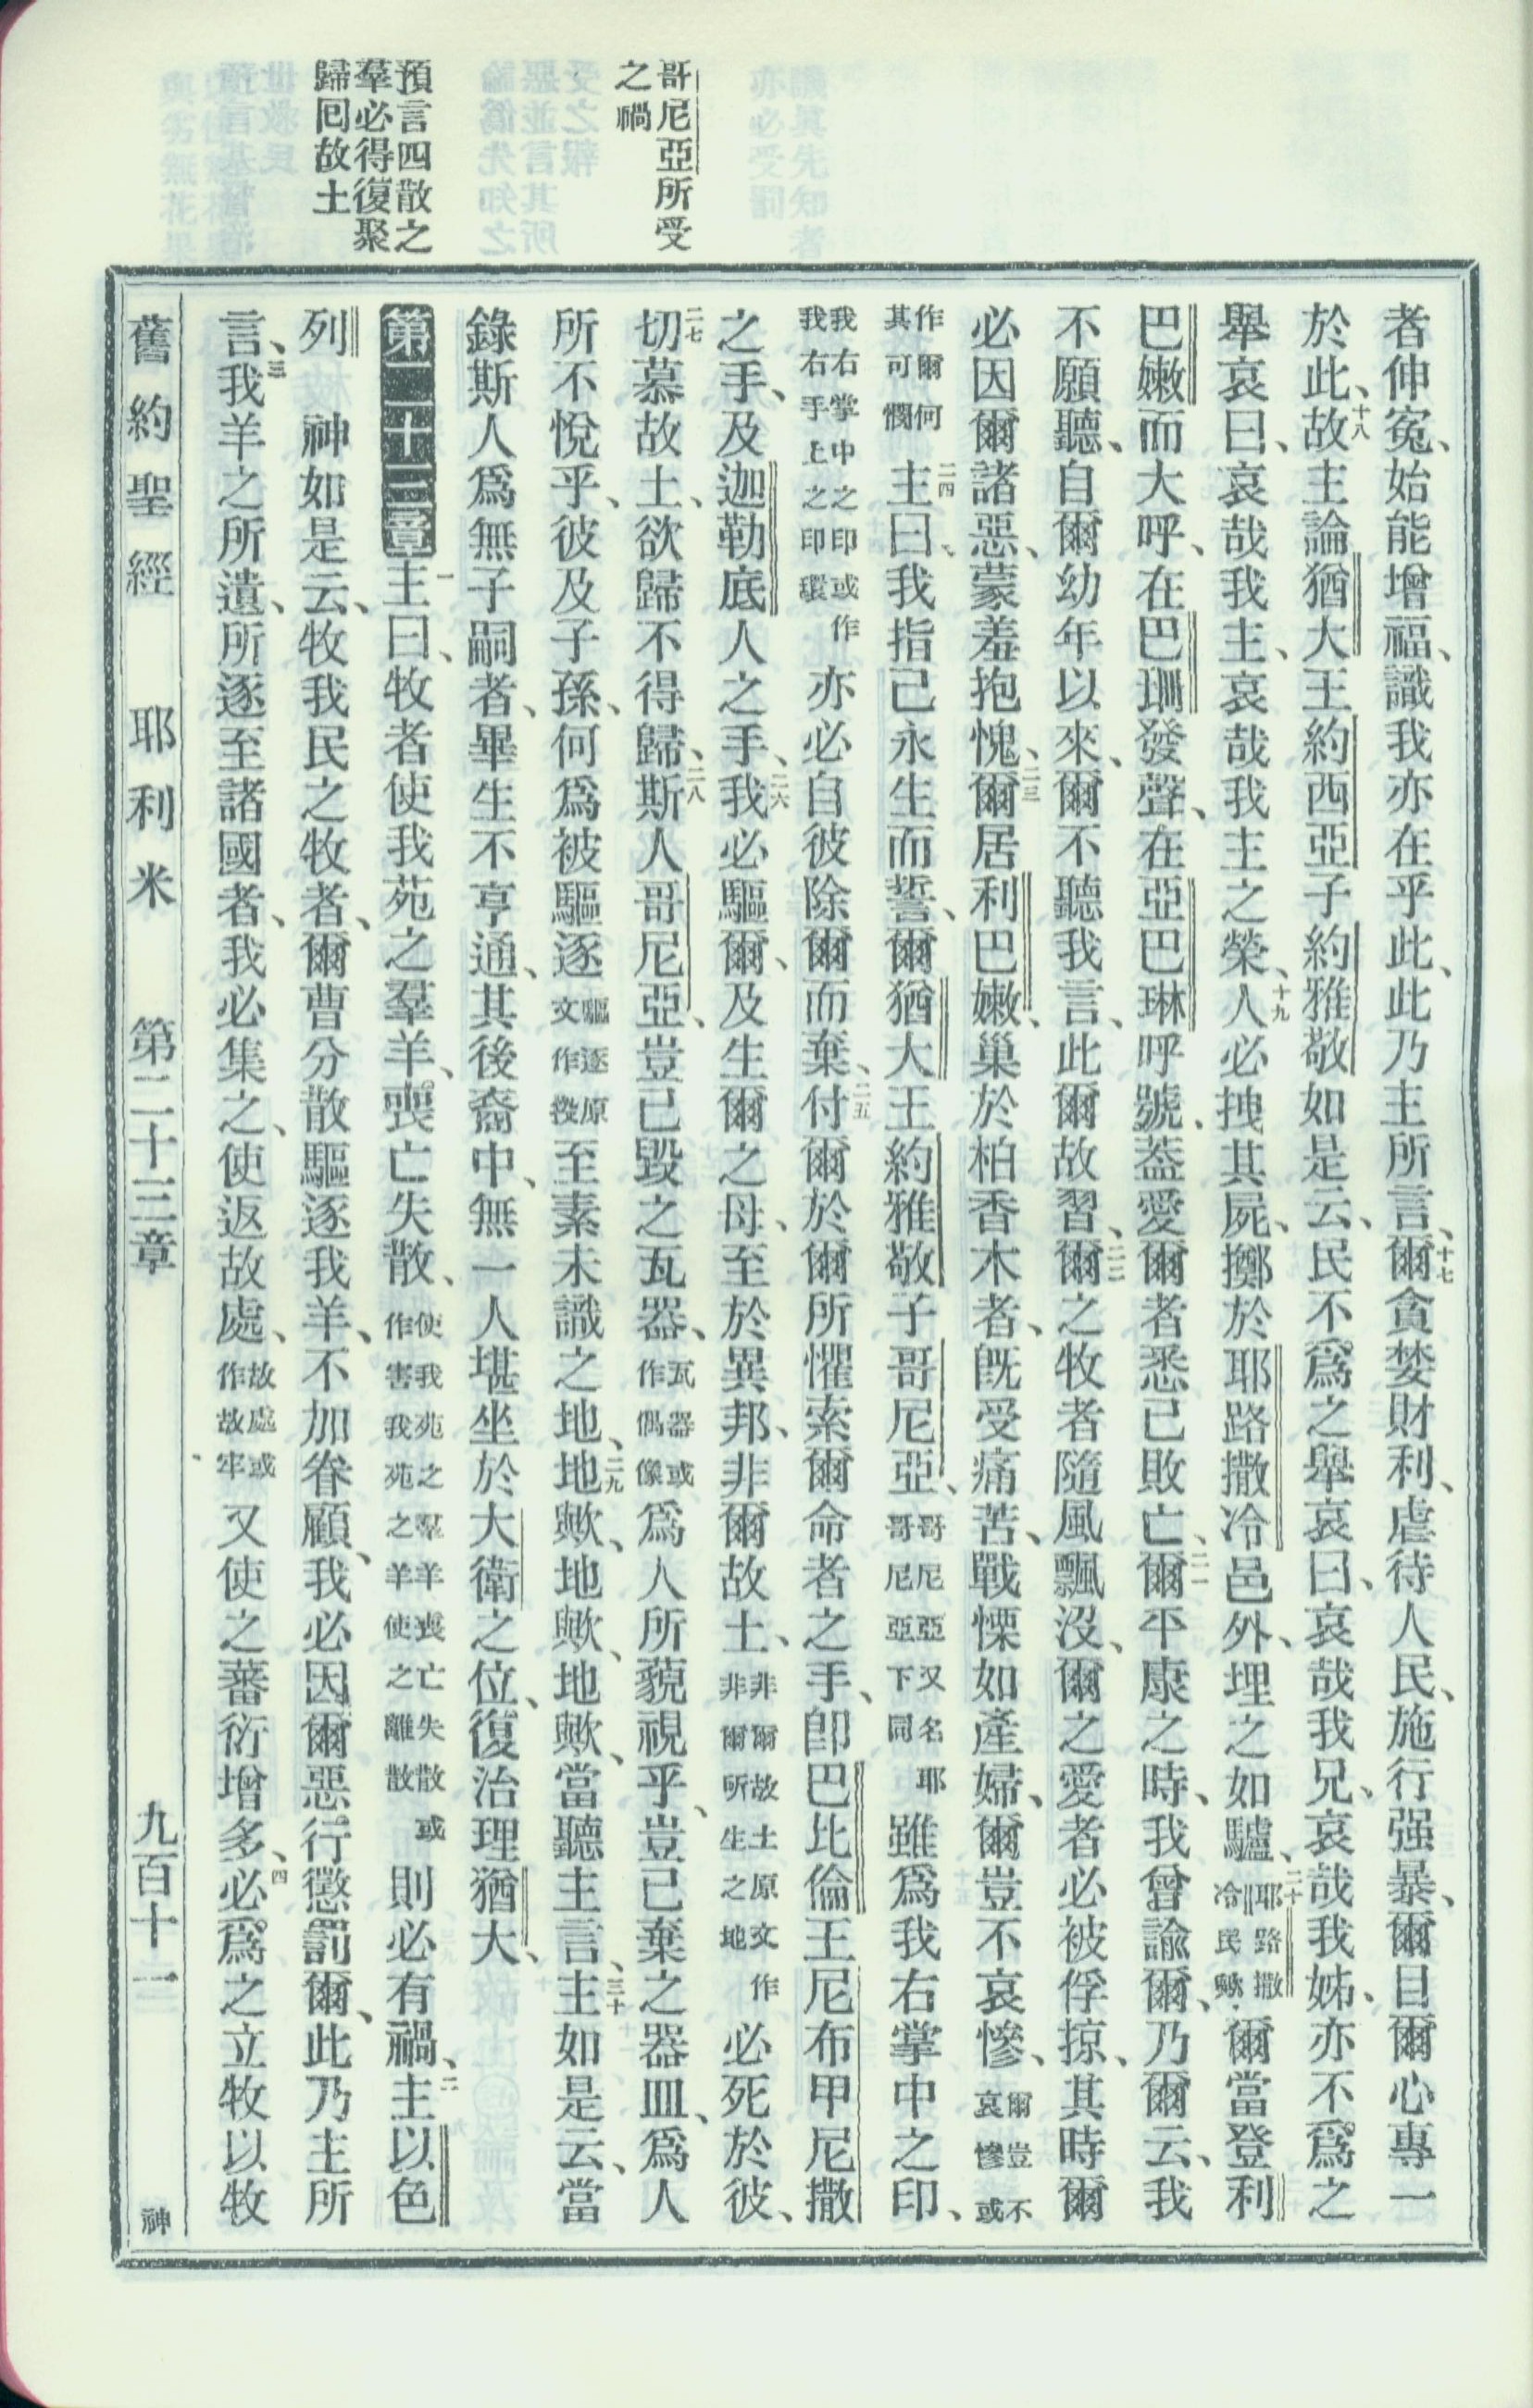 哥尼亞所受
之禍
預言四散之
羣必得復聚
歸回故土
者伸寃、始能增福、識我亦在乎此、此乃主所言、十七爾貪婪財利、虐待人民、施行强暴、爾目爾心專一
於此、十八故主論猶大王約西亞子約雅敬如是云、民不爲之舉哀曰、哀哉我兄、哀哉我姊、亦不爲之
舉哀曰、哀哉我主、哀哉我主之榮、十九人必拽其屍、擲於耶路撒冷邑外、埋之如驢、二十耶路撒冷民歟、爾當登利
巴嫩而大呼、在巴珊發聲、在亞巴琳呼號、葢愛爾者悉已敗亡、二一爾平康之時、我曾諭爾、乃爾云、我
不願聽、自爾幼年以來、爾不聽我言、此爾故習、二二爾之牧者隨風飄沒、爾之愛者必被俘掠、其時爾
必因爾諸惡、蒙羞抱愧、二三爾居利巴嫩、巢於柏香木者、旣受痛苦、戰慄如產婦、爾豈不哀慘、爾豈不哀慘或
作爾何其可憫二四主曰、我指己永生而誓、爾猶大王約雅敬子哥尼亞、哥尼亞又名耶哥尼亞下同雖爲我右掌中之印、
我右掌中之印或作我右手上之印環亦必自彼除爾而棄、二五付爾於爾所懼索爾命者之手、卽巴比倫王尼布甲尼撒
之手、及迦勒底人之手、二六我必驅爾、及生爾之母、至於異邦、非爾故土、非爾故土原文作非爾所生之地必死於彼、
二七切慕故土、欲歸不得歸、二八斯人哥尼亞、豈已毀之瓦器、瓦器或作偶像爲人所藐視乎、豈已棄之器皿、爲人
所不悅乎、彼及子孫、何爲被驅逐驅逐原文作投至素未識之地、二九地歟、地歟、地歟、當聽主言、三十主如是云、當
錄斯人爲無子嗣者、畢生不亨通、其後裔中、無一人堪坐於大衛之位、復治理猶大、
第二十三章一主曰、牧者使我苑之羣羊、喪亡失散、使我苑之羣羊喪亡失散或作害我苑之羊使之離散則必有禍、二主以色
列　神如是云、牧我民之牧者、爾曹分散驅逐我羊、不加眷顧、我必因爾惡行懲罰爾、此乃主所
言、三我羊之所遺、所逐至諸國者、我必集之、使返故處、故處或作故牢又使之蕃衍增多、四必爲之立牧以牧
舊約聖經　耶利米　第二十三章　九百十一　神